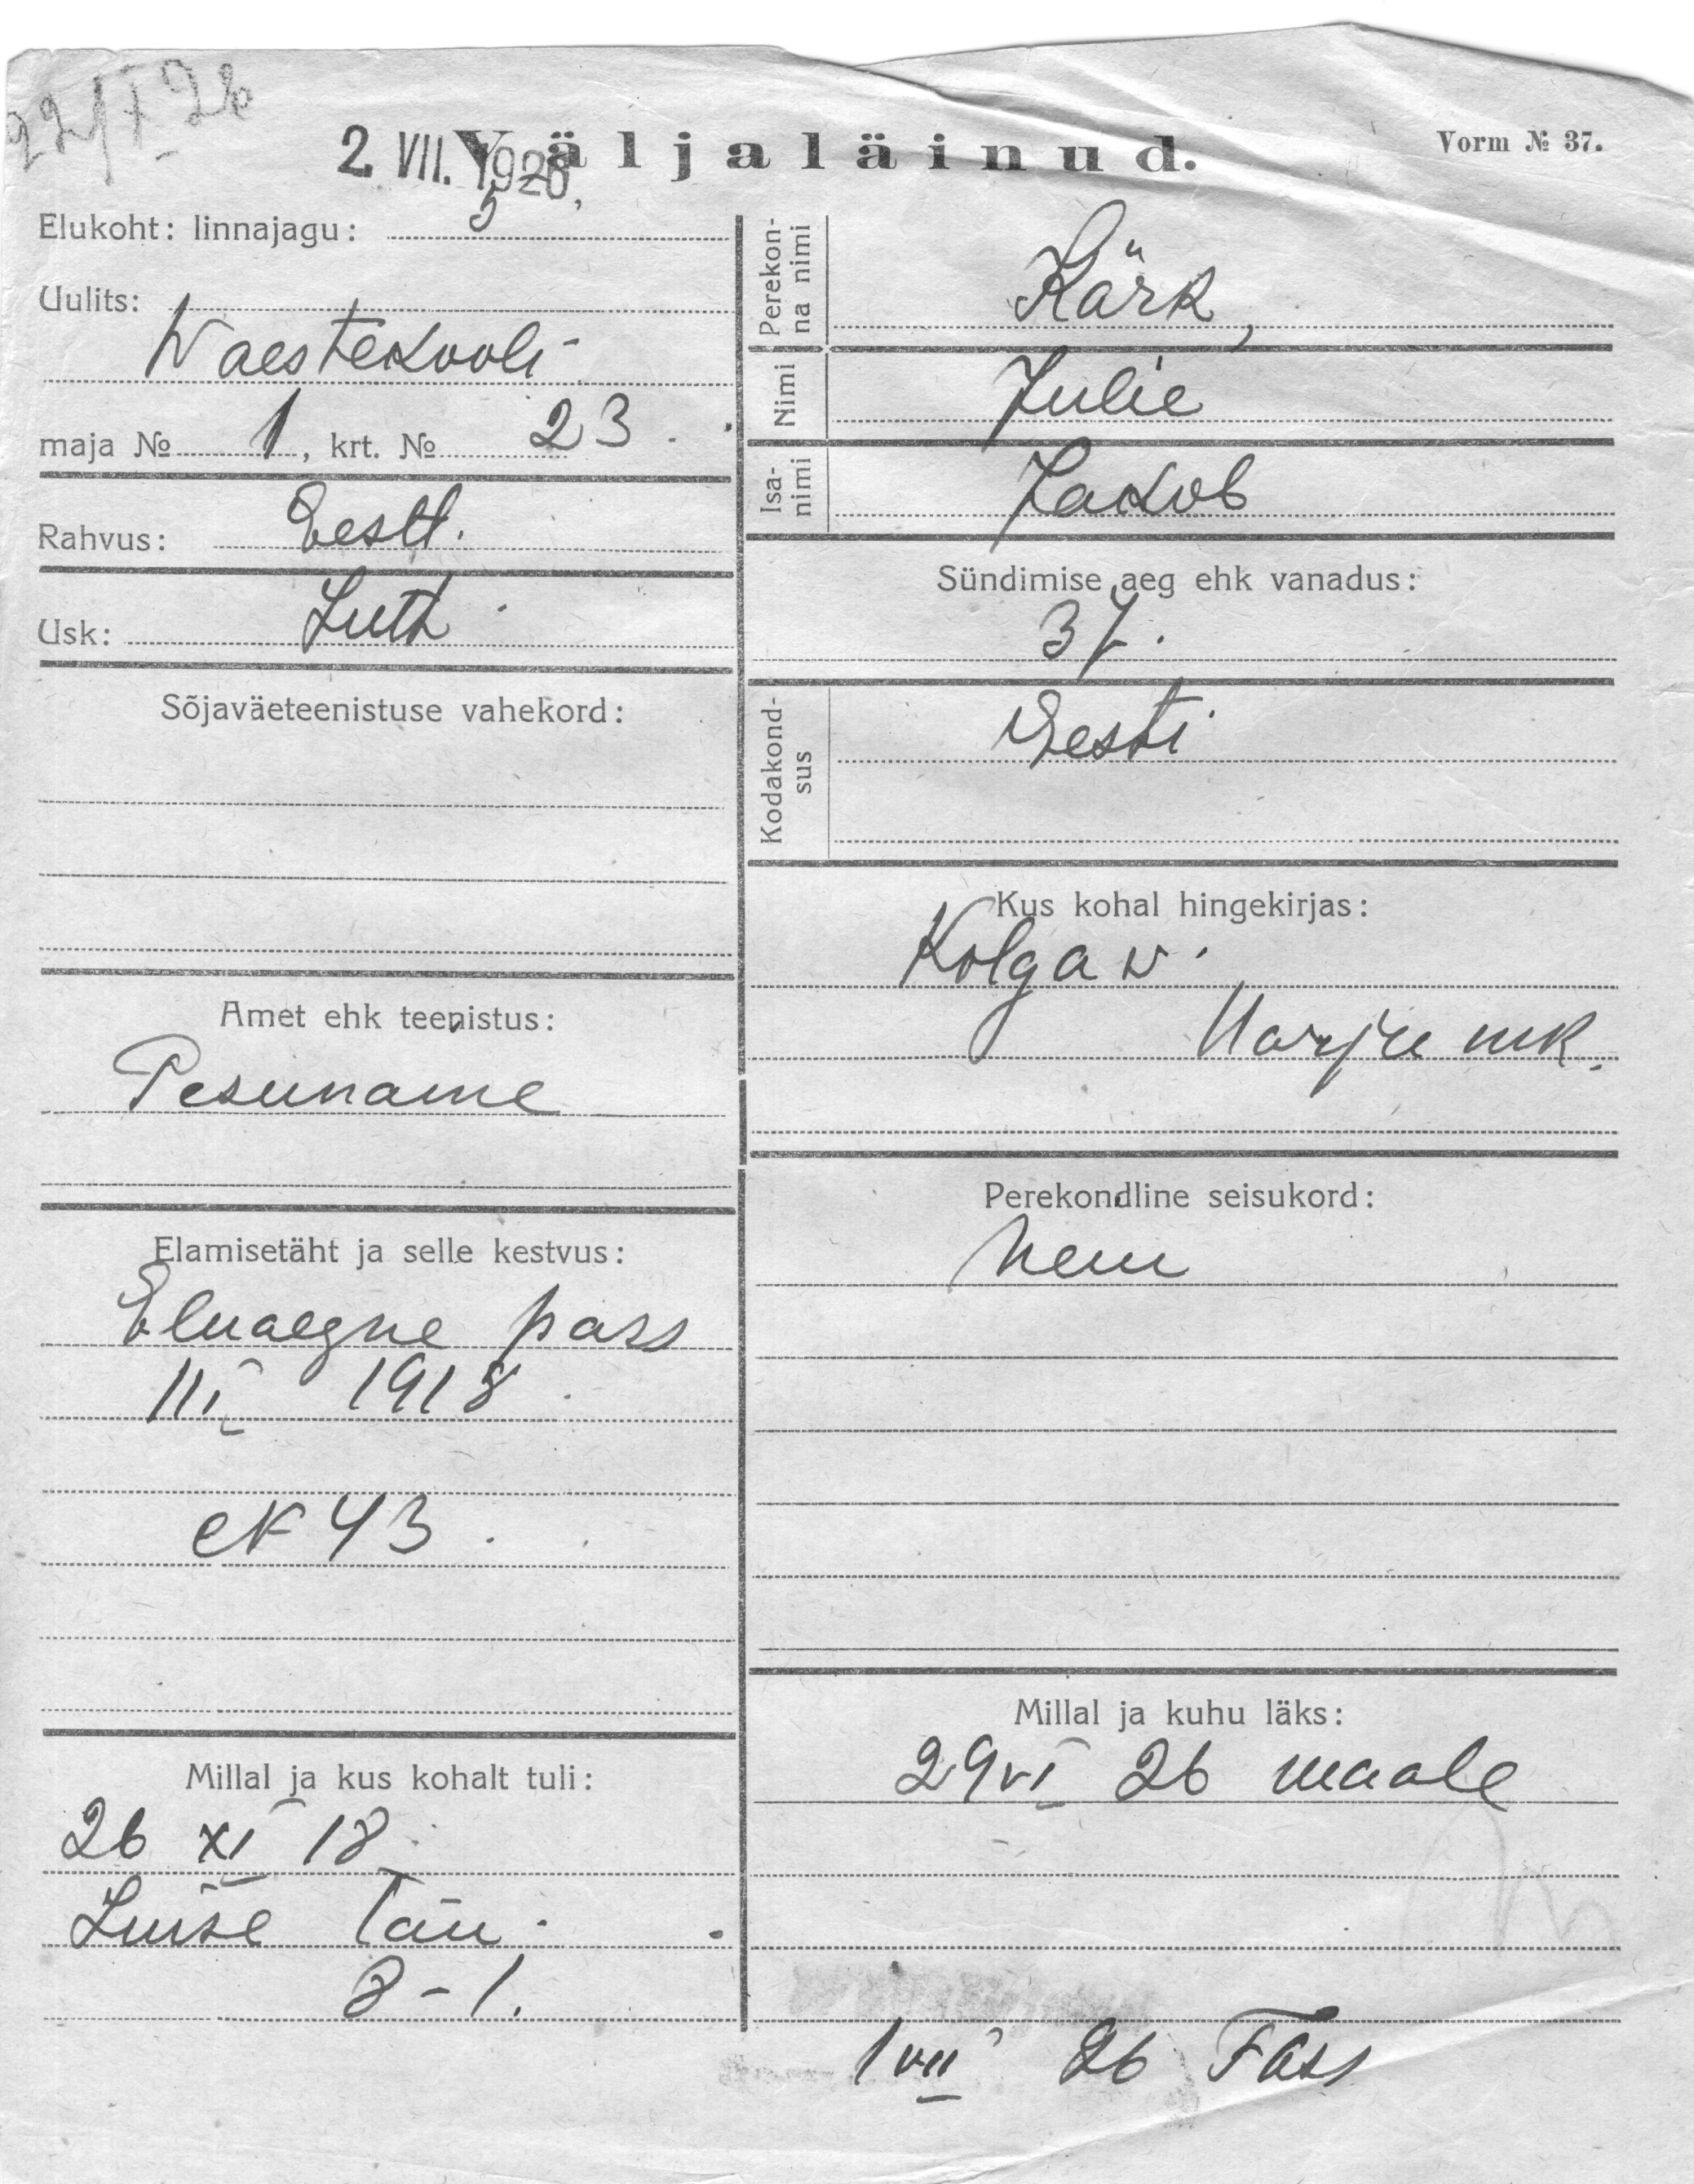 22/X 26
2. VII. 1926,
Väljaläinud.
Vorm № 37.
Elukoht: linnajagu: 5
Uulits:
Waestekooli
maja № 1, krt. № 23.
Rahvus: Eestl.
Usk: Luth.
Sõjaväeteenistuse vahekord:
Amet ehk teenistus:
Pesunaine
Elamisetäht ja selle kestvus:
Eluaegne pass
III 1918.
№ 43.
Millal ja kus kohalt tuli:
26 XI 18.
Luise tän.
8-1.
Perekonna nimi
Kärk,
Nimi
Julie
Isanimi
Jakob
Sündimise aeg ehk vanadus:
37.
Kodakondsus
Eesti
Kus kohal hingekirjas:
Kolga w.
Harju mk.
Perekondline seisukord:
Neiu
Millal ja kuhu läks:
29 VI 26 maale
1 VII 26